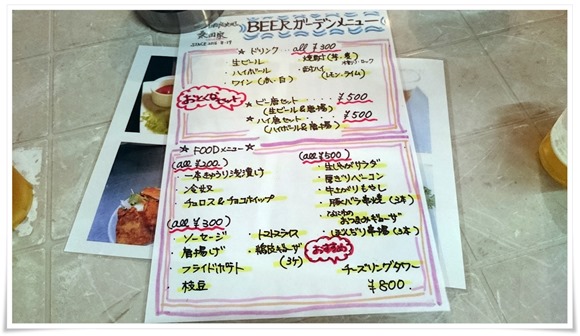 BEERガーデンメニュー
★ ドリンク all ¥300
・生ビール
・ハイボール
・ワイン(赤・白)
・焼酎(芋・麦)
(レモン・ライム)
おとくなセット
★ ビー唐セット ・・・・ ¥500
(生ビール&唐揚)
★ ハイ唐セット ・・・・ ¥500
(ハイボール&唐揚)
★ FOODメニュー ★
(all ¥200)
・一本きゅうり浅漬け
・冷奴
・チュロス&チョコホイップ
(all ¥300)
・ソーセージ
・唐揚げ
・フライドポテト
・枝豆
・トマトスライス
・鶏皮ギョーザ
(3ケ)
(all ¥500)
・生しらすサラダ
・厚切りベーコン
・牛さがりもやし
・豚バラ串焼(3本)
・なにわの
おつまみギョーザ
・ぼんじり串焼(3本)
おすすめ
チーズリングタワー
¥800